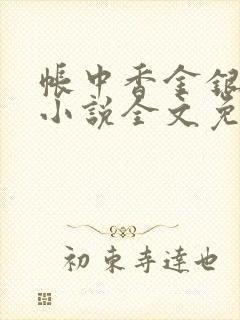 帳中香金銀
小說全文免
初束寺達也